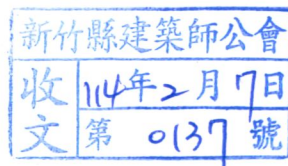 新竹縣建築師公會
收文
114年2月7日
第 0137 號